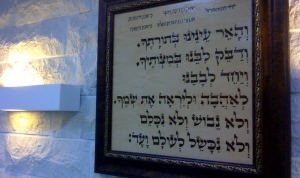 והאר עינינו בתורתך,
ודבק לבנו במצותיך,
ויחד לבבנו
לאהבה וליראה את שמך,
ולא נבוש ולא נכלם
ולא נכשל לעולם ועד: